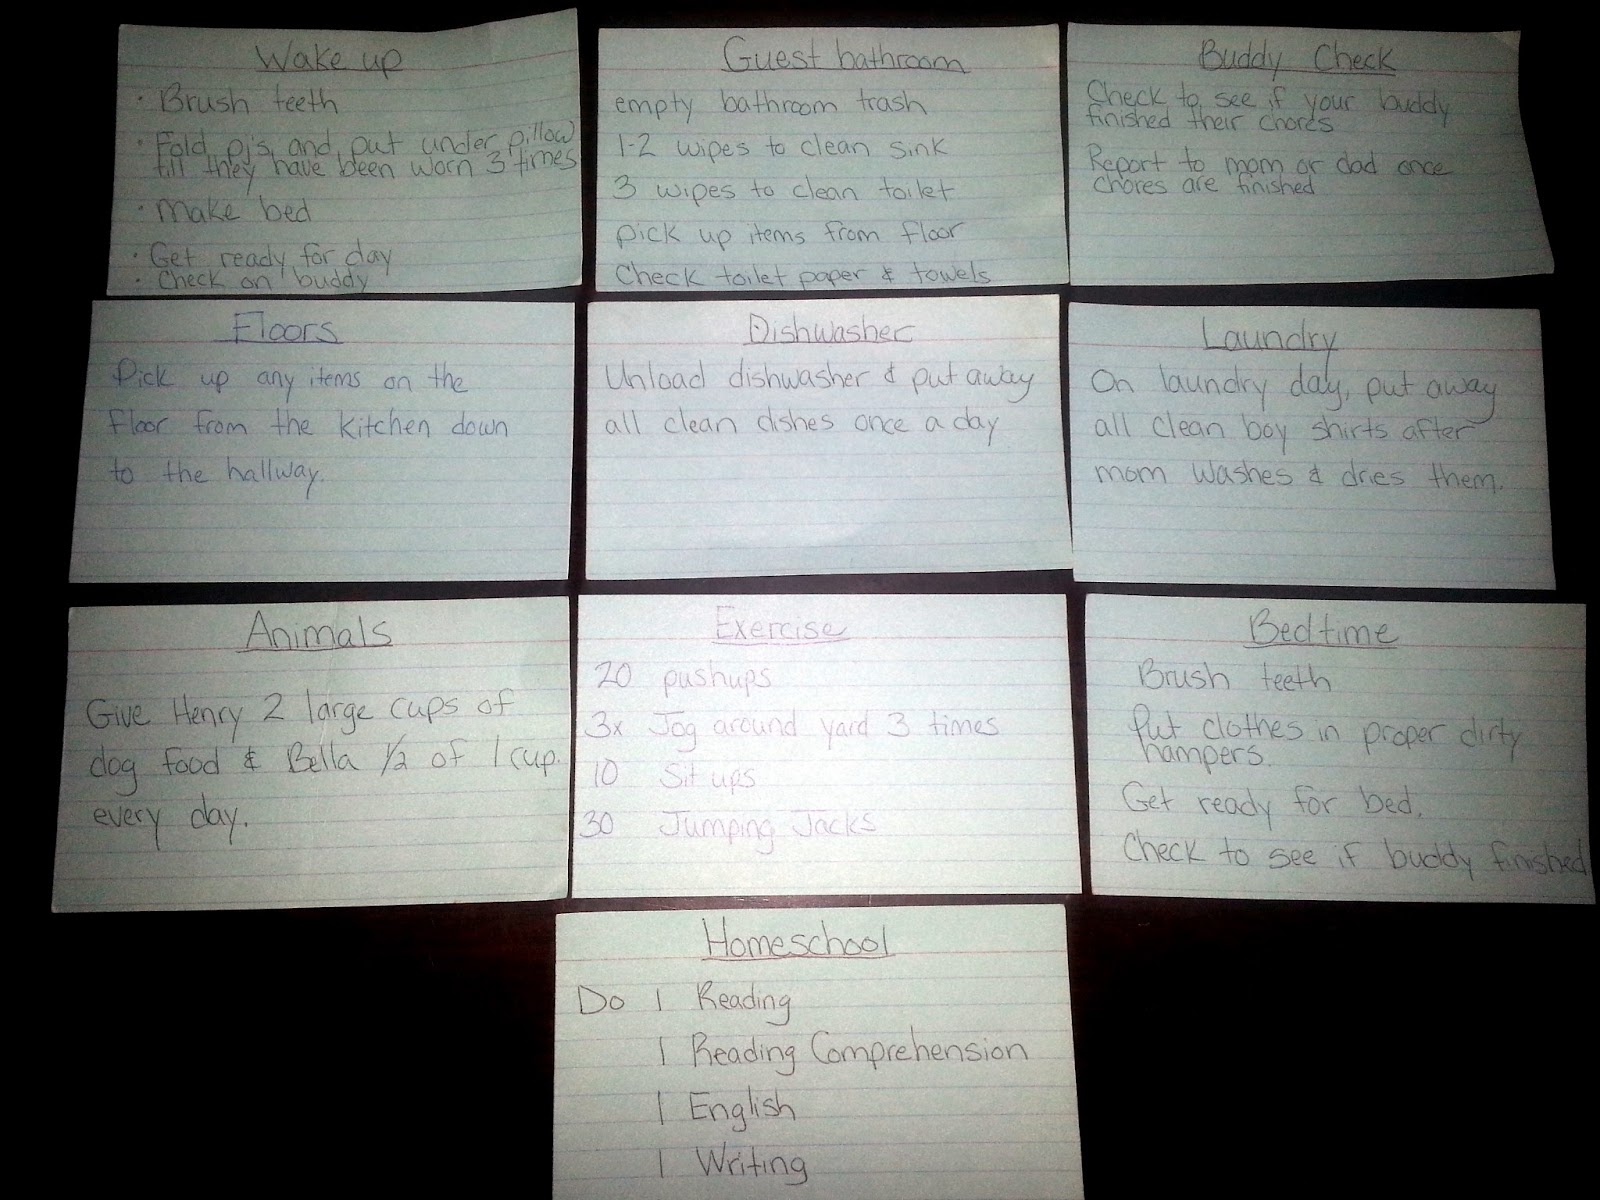 Wake up
· Brush teeth
· Fold pj's and put under pillow
till they have been worn 3 times
· Make bed
· Get ready for day
· Check on buddy
Guest bathroom
empty bathroom trash
1-2 wipes to clean sink
3 wipes to clean toilet
pick up items from floor
Check toilet paper & towels
Buddy Check
Check to see if your buddy
finished their chores
Report to mom or dad once
chores are finished
Floors
Pick up any items on the
floor from the kitchen down
to the hallway.
Dishwasher
Unload dishwasher & put away
all clean dishes once a day
Laundry
On laundry day, put away
all clean boy shirts after
mom washes & dries them.
Animals
Give Henry 2 large cups of
dog food & Bella 1/2 of 1 cup.
every day.
Exercise
20 pushups
3x Jog around yard 3 times
10 Sit ups
30 Jumping Jacks
Bedtime
Brush teeth
Put clothes in proper dirty
hampers.
Get ready for bed.
Check to see if buddy finished
Homeschool
Do 1 Reading
1 Reading Comprehension
1 English
1 Writing